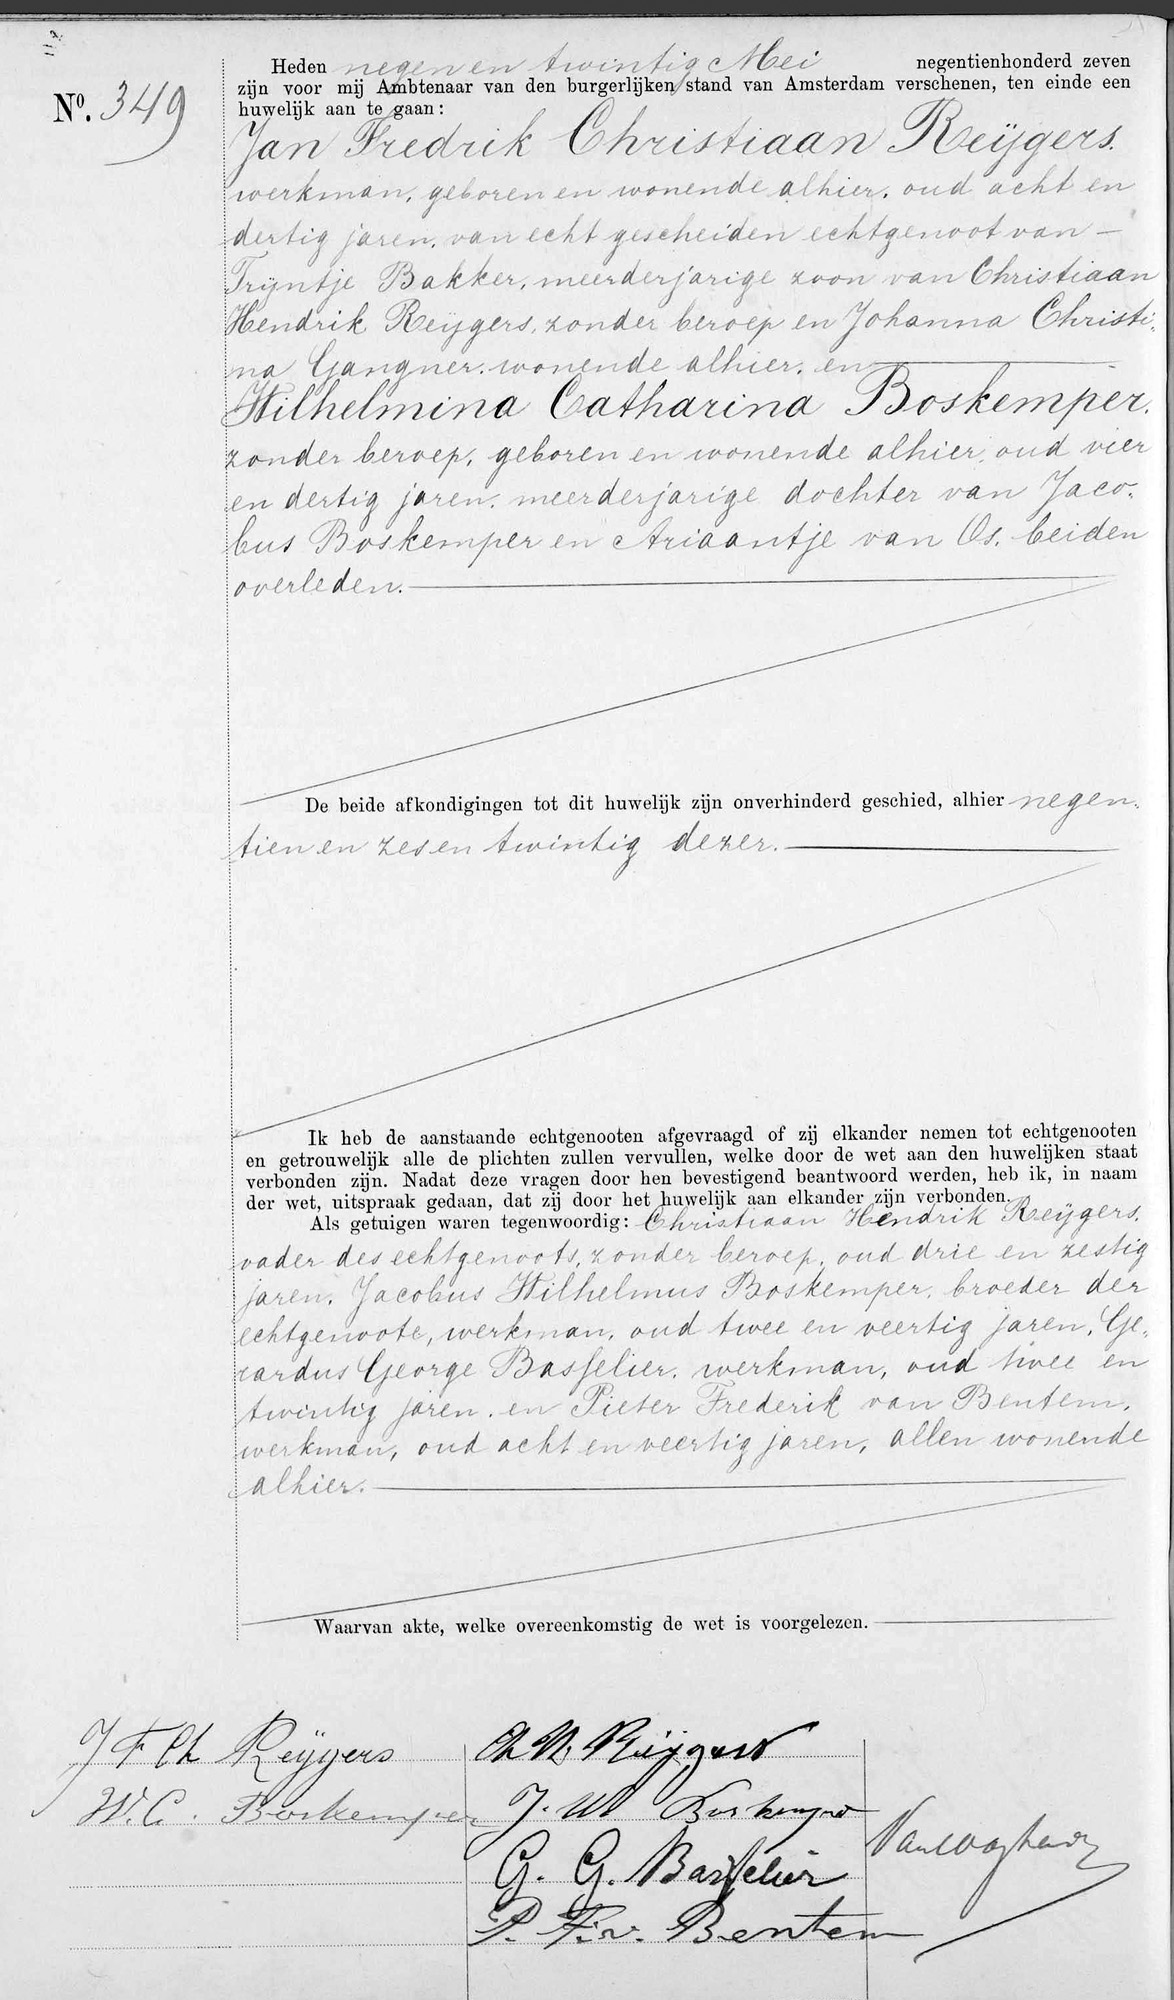 Heden negen en twintig Mei negentienhonderd zeven
zijn voor mij Ambtenaar van den burgerlijken stand van Amsterdam verschenen, ten einde een
No. 349
huwelijk aan te gaan:
Jan Fredrik Christiaan Reijgers.
werkman, geboren en wonende alhier, oud acht en
dertig jaren, van echt gescheiden echtgenoot van —
Trijntje Bakker, meerderjarige zoon van Christiaan
Hendrik Reijgers, zonder beroep en Johanna Christi-
na Gangner, wonende alhier, en
Wilhelmina Catharina Boskemper.
zonder beroep, geboren en wonende alhier, oud vier
en dertig jaren, meerderjarige dochter van Jaco-
bus Boskemper en Ariaantje van Os, beiden
overleden.
De beide afkondigingen tot dit huwelijk zijn onverhinderd geschied, alhier negen-
tien en zes en twintig dezer.
Ik heb de aanstaande echtgenooten afgevraagd of zij elkander nemen tot echtgenooten
en getrouwelijk alle de plichten zullen vervullen, welke door de wet aan den huwelijken staat
verbonden zijn. Nadat deze vragen door hen bevestigend beantwoord werden, heb ik, in naam
der wet, uitspraak gedaan, dat zij door het huwelijk aan elkander zijn verbonden.
Als getuigen waren tegenwoordig: Christiaan Hendrik Reijgers,
vader des echtgenoots, zonder beroep, oud drie en zestig
jaren, Jacobus Wilhelmus Boskemper, broeder der
echtgenoote, werkman, oud twee en veertig jaren, Ge-
rardus George Basselier, werkman, oud twee en
twintig jaren, en Pieter Frederik van Bentem,
werkman, oud acht en veertig jaren, allen wonende
alhier.
Waarvan akte, welke overeenkomstig de wet is voorgelezen.
J F Ch Reijgers
Ch H. Reijgers
W. C. Boskemper
J. W Boskemper
G. G. Basselier
P. F. v. Bentem